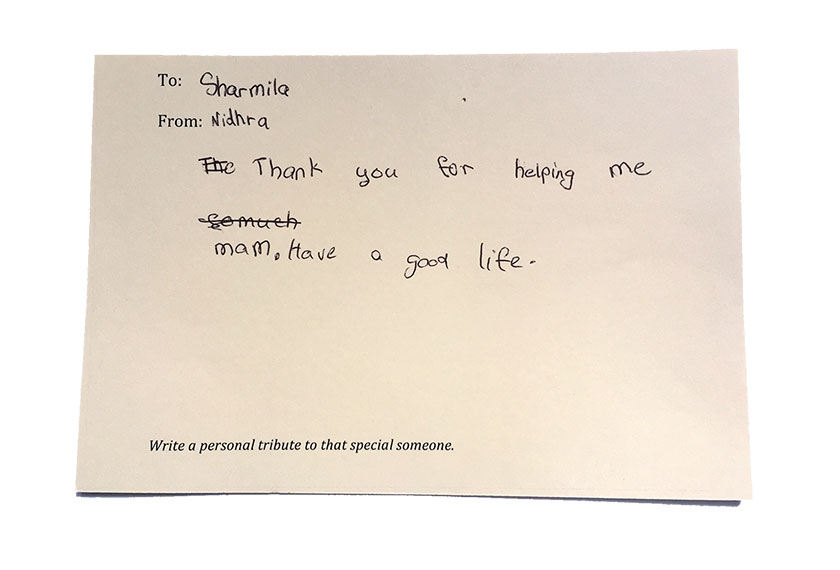 To: Sharmila
From: Nidhra
The Thank you for helping me
so much
mam. Have a good life.
Write a personal tribute to that special someone.